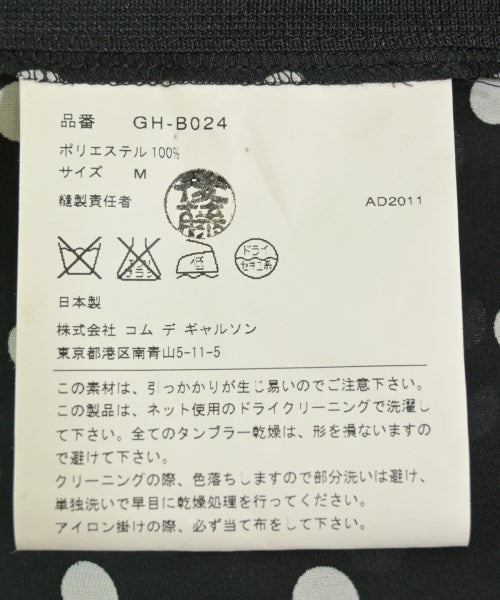 品番 GH-B024
ポリエステル 100%
サイズ M
縫製責任者 後藤 AD2011
エンソ サラシ 低 ドライ セキユ系
日本製
株式会社 コム デ ギャルソン
東京都港区南青山5-11-5
この素材は、引っかかりが生じ易いのでご注意下さい。
この製品は、ネット使用のドライクリーニングで洗濯し
て下さい。全てのタンブラー乾燥は、形を損ないますの
で避けて下さい。
クリーニングの際、色落ちしますので部分洗いは避け、
単独洗いで早目に乾燥処理を行ってください。
アイロン掛けの際、必ず当て布をして下さい。